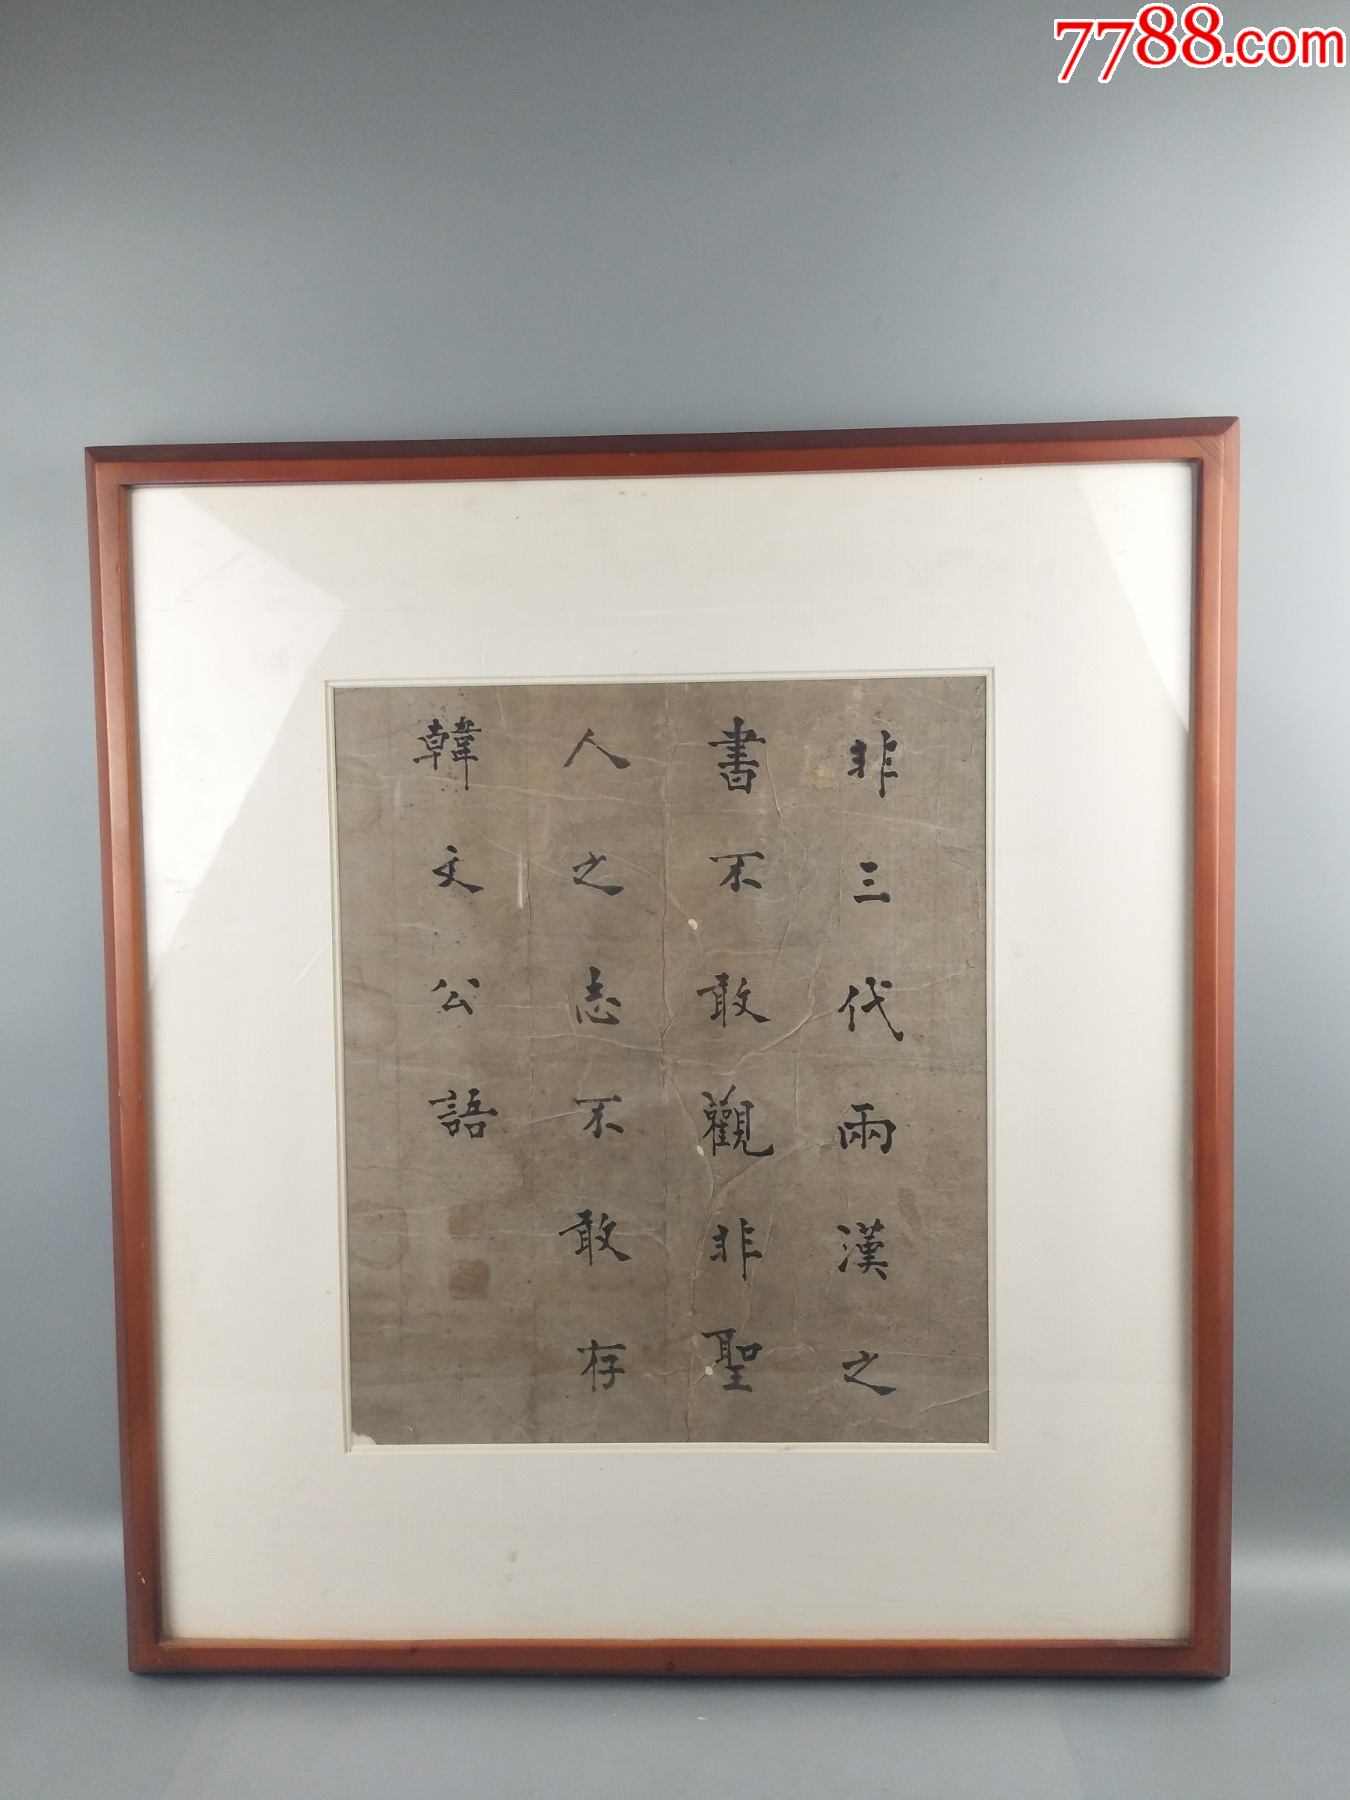 7788.com
非三代兩漢之
書不敢觀非聖
人之志不敢存
韓文公語